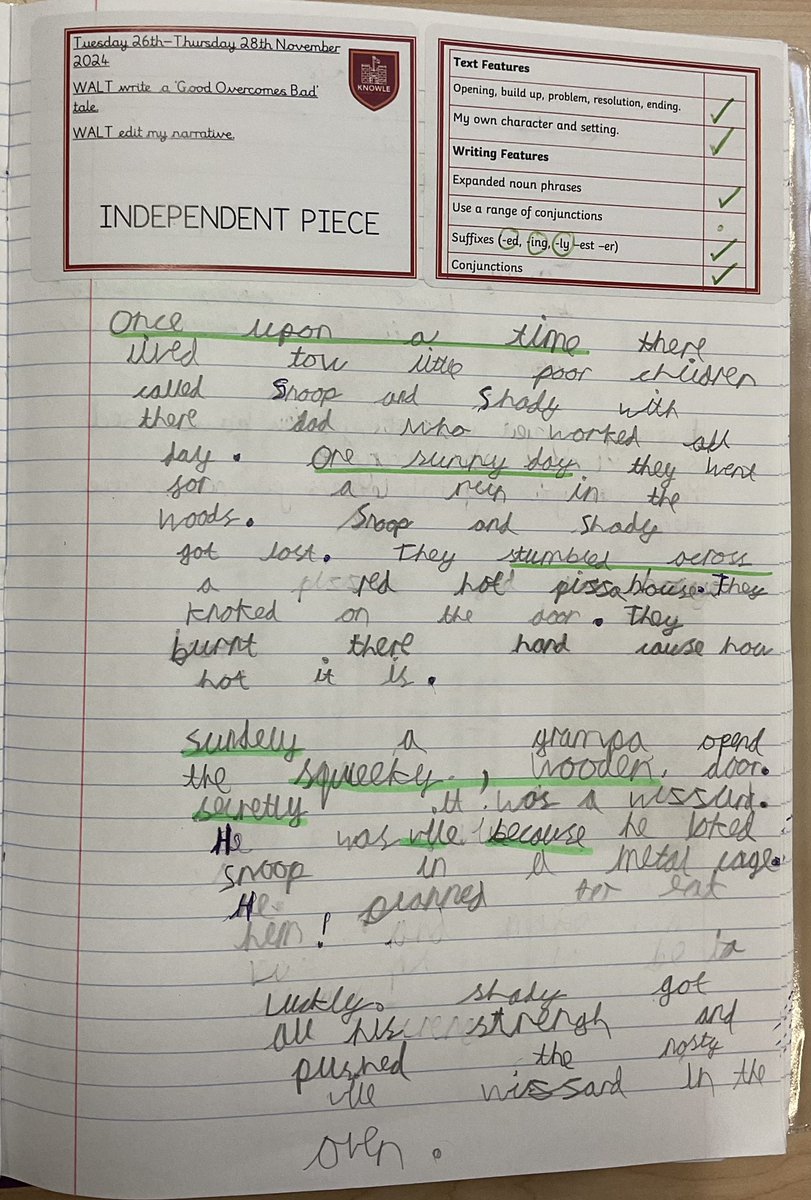 Tuesday 26th–Thursday 28th November
2024
WALT write a 'Good Overcomes Bad'
tale.
WALT edit my narrative.
KNOWLE
INDEPENDENT PIECE
Text Features
Opening, build up, problem, resolution, ending.
My own character and setting.
Writing Features
Expanded noun phrases
Use a range of conjunctions
Suffixes (-ed, -ing, -ly –est –er)
Conjunctions
Once upon a time there
lived tow little poor children
called Snoop and Shady with
there dad who worked all
day. One sunny day. they went
for a run in the
woods. Snoop and Shady
got lost. They stumbled across
a red hot pissa house. They
knoked on the door. They
burnt there hand cause how
hot it is.
sundely a grampa opend
the squeeky, wooden, door.
secretly it was a wissard.
He was vile because he loked
snoop in a metal cage.
He planned to eat
hem!
Luckly. shady got
all his strengh and
pushed the nasty
vile wissard in the
oven.